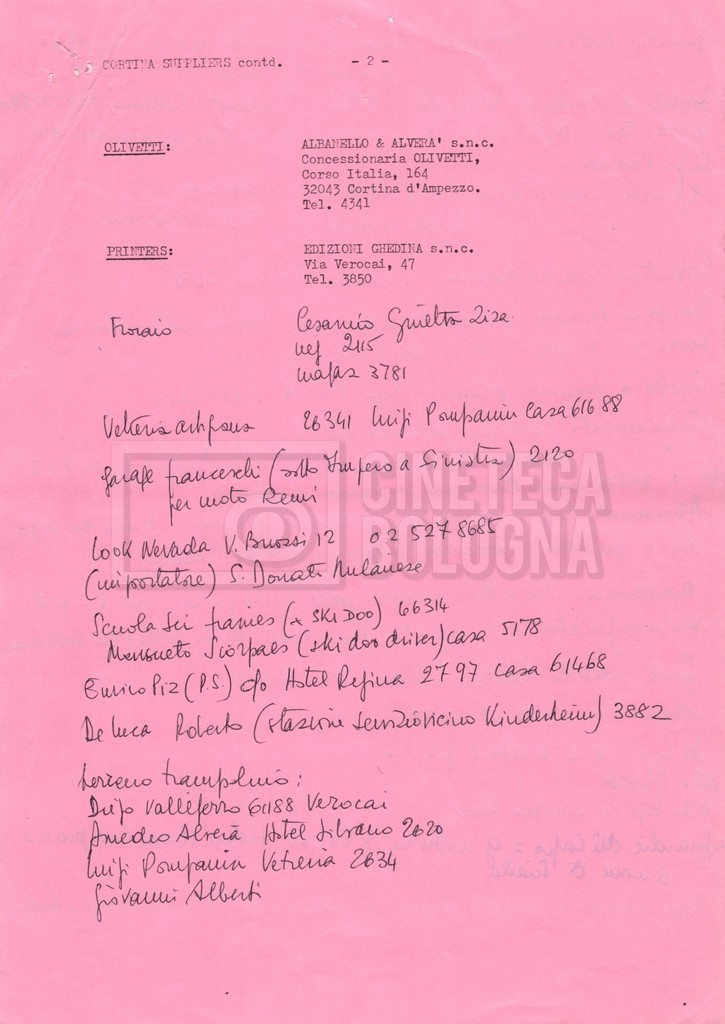 CORTINA SUPPLIERS contd. - 2 -
OLIVETTI: ALBANELLO & ALVERA' s.n.c.
Concessionaria OLIVETTI,
Corso Italia, 164
32043 Cortina d'Ampezzo.
Tel. 4341
PRINTERS: EDIZIONI GHEDINA s.n.c.
Via Verocai, 47
Tel. 3850
Fioraio Zisa
neg 2115
3781
Vetreria 26341 Luigi Pompanin casa 61688
garage franceschi (sotto Impero a Sinistra) 2120
per moto Remi
CINETECA
BOLOGNA
Look Nevada V. 12 02 5278685
(importatore) S. Donato Milanese
Scuola Sci (x SKI DOO) 66314
Scorpaes (ski doo driver) casa 5178
Enrico Piz (P.S.) c/o Hotel Regina 2797 casa 61468
De Luca Roberto (stazione servizio vicino Kinderheim) 3882
terreno trampolino:
61188 Verocai
Amedeo Alverà Hotel 2620
Luigi Pompanin Vetreria 2634
Giovanni Alberti